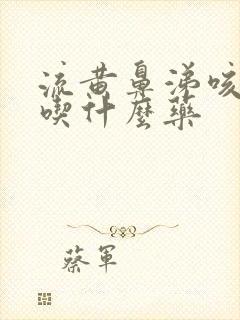 流黄鼻涕咳
喫什麼藥
蔡軍